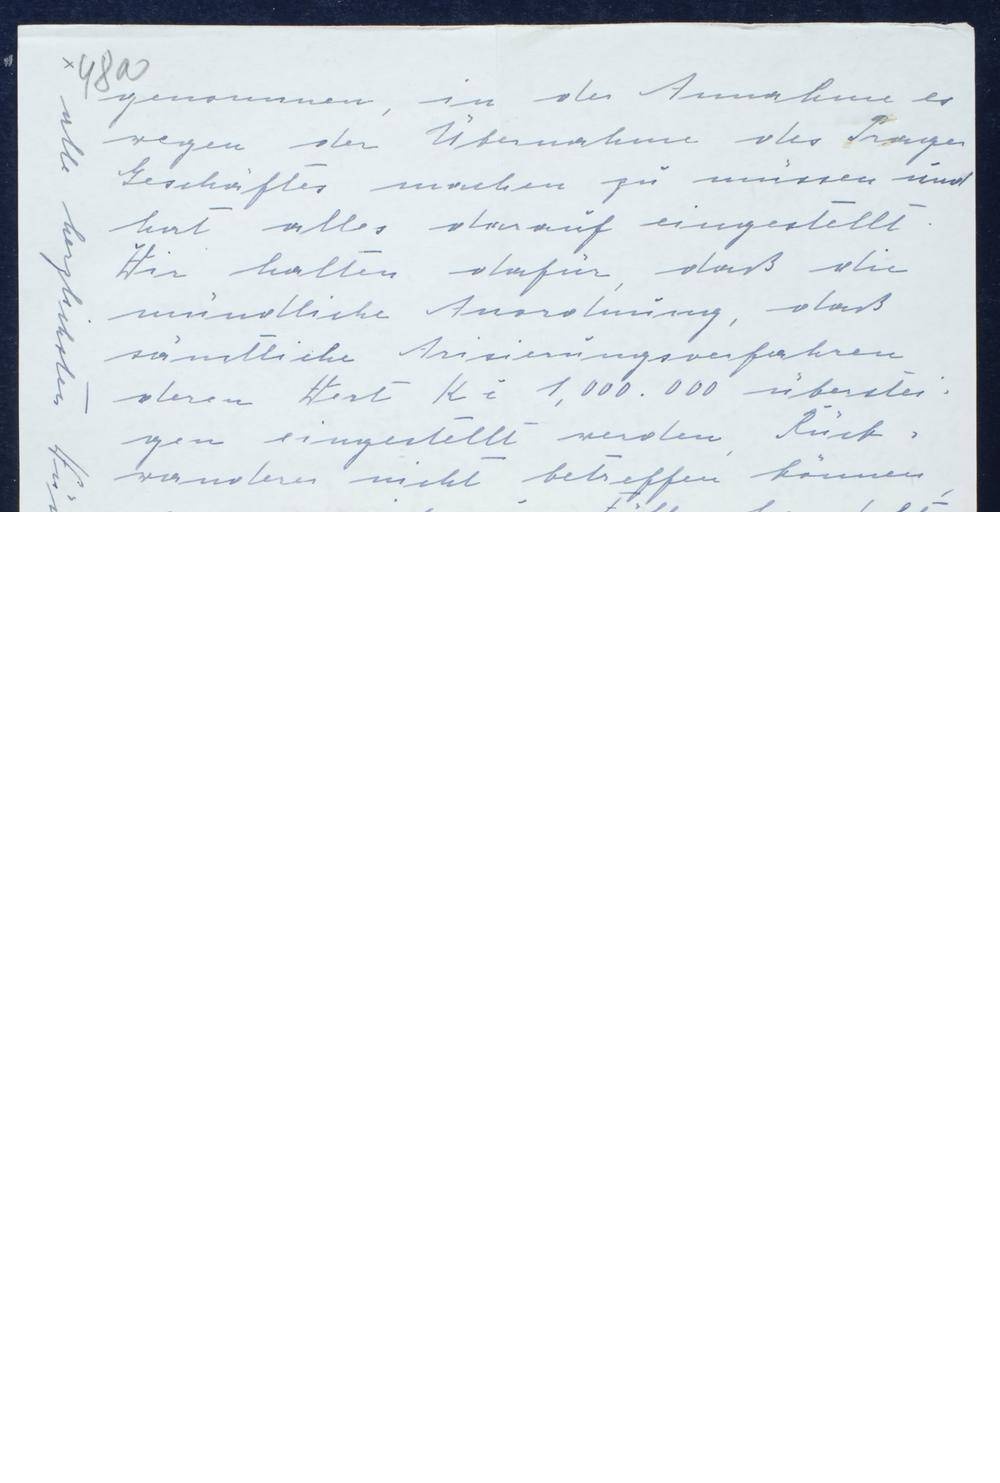 48a
genommen, in der Annahme es
wegen der Übernahme des Prager
Geschäftes machen zu müssen und
hat alles darauf eingestellt.
Wir halten dafür, daß die
mündliche Anordnung, daß
sämtliche Arisierungsverfahren
deren Wert K č 1,000.000 überstei-
gen eingestellt werden, Rück-
wanderer nicht betreffen können,
x alle herzlichsten